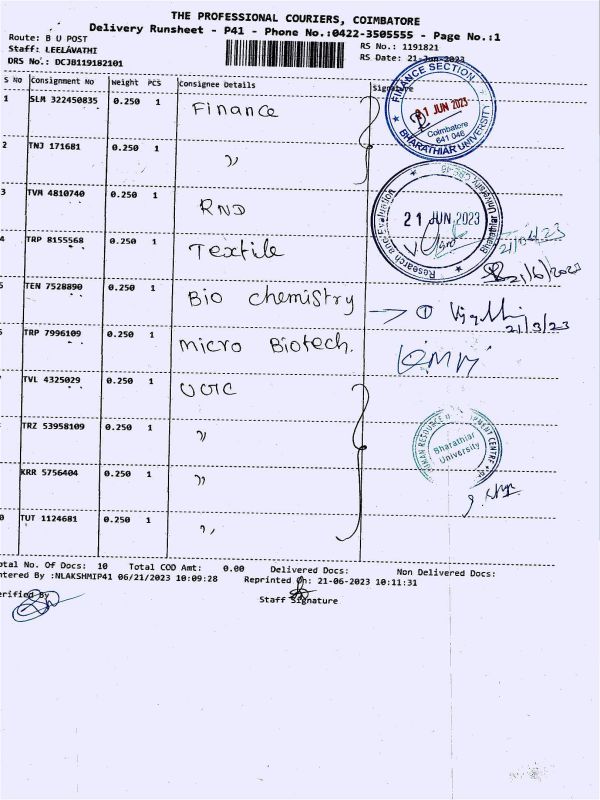 THE PROFESSIONAL COURIERS, COIMBATORE
Delivery Runsheet - P41 - Phone No.:0422-3505555 - Page No.:1
Route: B U POST
Staff: LEELAVATHI
DRS No.: DCJB119182101
RS No.: 1191821
RS Date: 21-Jun-2023
S No Consignment No Weight PCS Consignee Details Signature
1 SLM 322450835 0.250 1 Finance
FINANCE SECTION
21 JUN 2023
Coimbatore
641 046
BHARATHIAR UNIVERSITY
2 TNJ 171681 0.250 1 〃
3 TVM 4810740 0.250 1 RND
Research and Evaluation
21 JUN 2023
Bharathiar University
4 TRP 8155568 0.250 1 Textile
21/6/2023
5 TEN 7528890 0.250 1 Bio chemistry → ①
TRP 7996109 0.250 1 micro Biotech.
TVL 4325029 0.250 1 UGC
TRZ 53958109 0.250 1 〃
Bharathiar
University
KRR 5756404 0.250 1 〃
0 TUT 1124681 0.250 1 〃
otal No. Of Docs: 10 Total COD Amt: 0.00 Delivered Docs: Non Delivered Docs:
ntered By :NLAKSHMIP41 06/21/2023 10:09:28 Reprinted On: 21-06-2023 10:11:31
erified By
Staff Signature